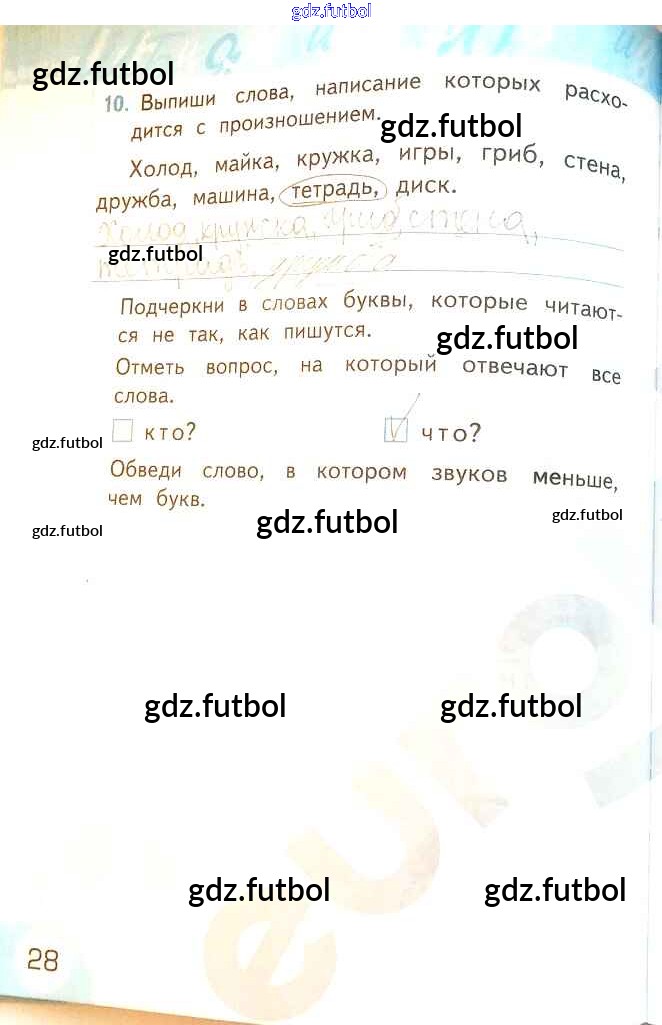 gdz.futbol
gdz.futbol
10. Выпиши слова, написание которых расхо-
дится с произношением.
gdz.futbol
Холод, майка, кружка, игры, гриб, стена,
дружба, машина, тетрадь, диск.
холод, кружка, гриб, стена,
gdz.futbol
тетрадь,
Подчеркни в словах буквы, которые читают-
ся не так, как пишутся.
gdz.futbol
Отметь вопрос, на который отвечают все
слова.
кто? что?
gdz.futbol
Обведи слово, в котором звуков меньше,
чем букв.
gdz.futbol
gdz.futbol
gdz.futbol
gdz.futbol gdz.futbol
gdz.futbol gdz.futbol
euro
28